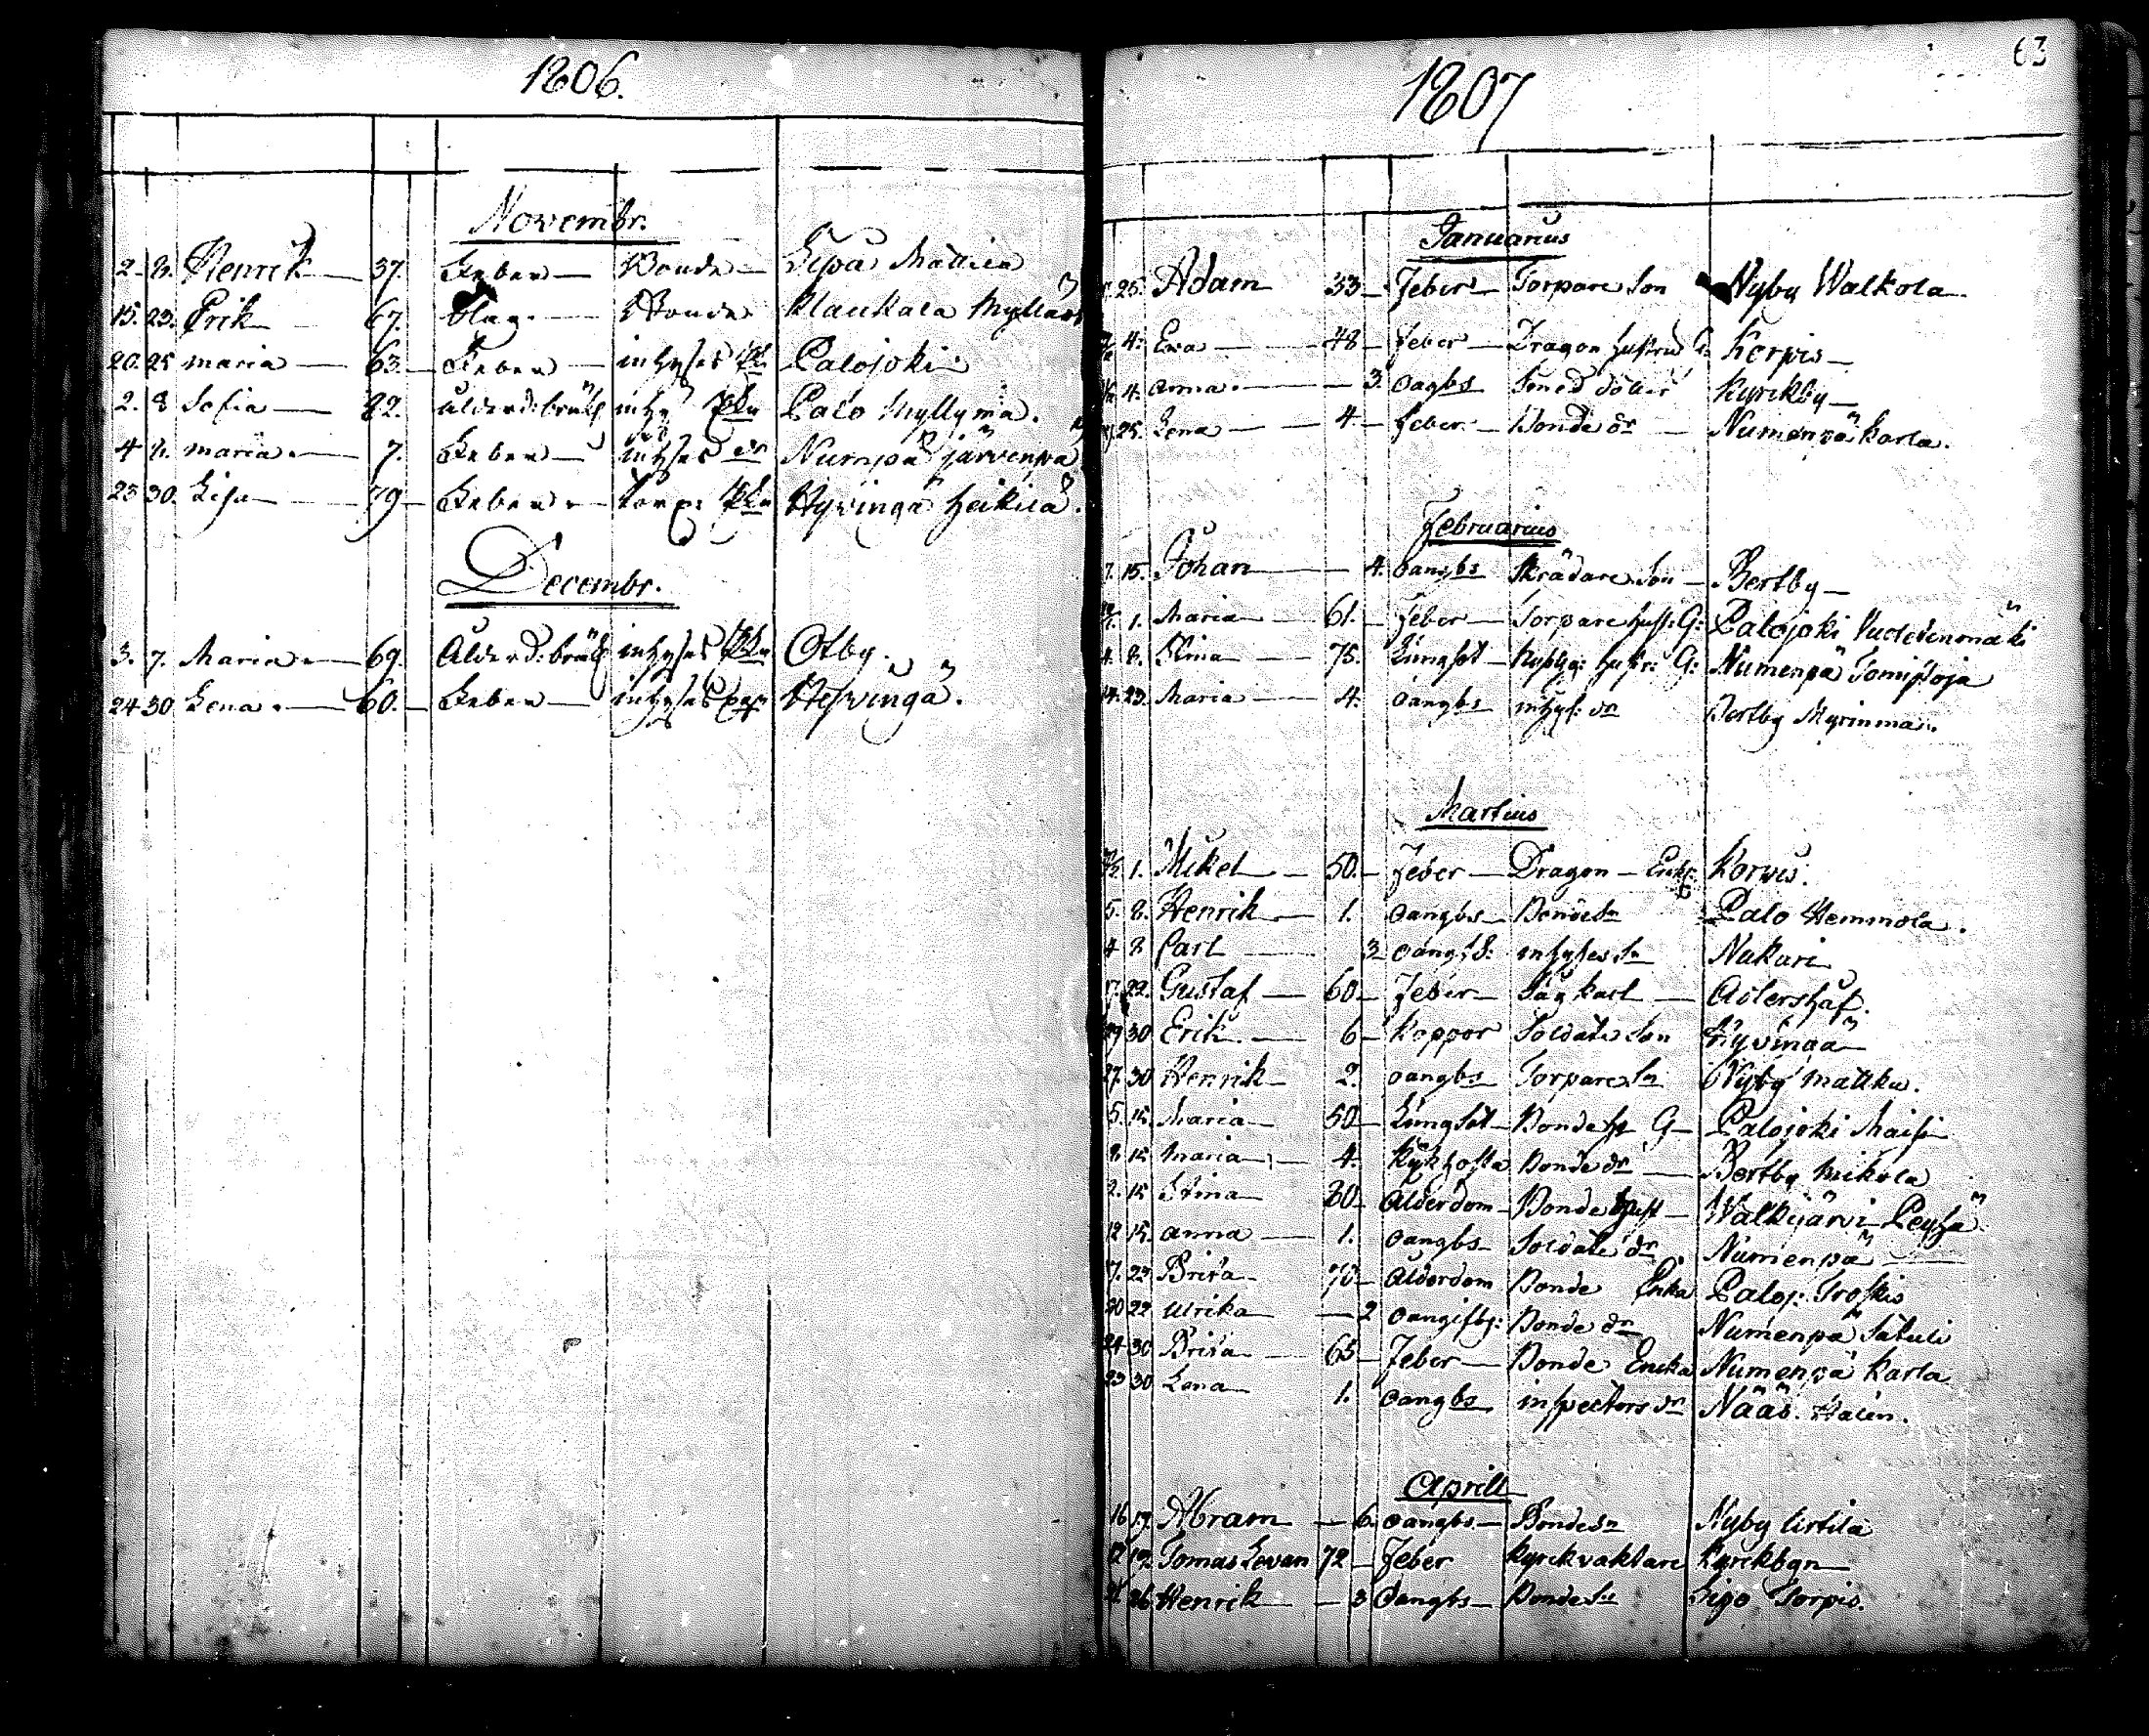 1806.
Novembr.
2. 8. Henrik 37. Feber Bonde Lepa Mattila
15. 23. Erik 67. Slag Bonde Klaukala Myllari
20. 25 maria 63 Feber inhyses Palojoki
2. 8 Sofia 82. alderd: bräck inhy Palo Myllymä.
4 8. maria 7. Feber inhyses dr Numpä järvenpä
23 30. Lisa 79 Feber torp: Hyvingä Heikilä.
Decembr.
3. 7. Maria 69. Alderd: bräck inhyses Otby.
24 30 Lena 60. Feber inhyses Hyvingä.
63
1807
Januarius
25. Adam 33 Feber Torpare Son Nyby Walkola
4. Ewa 48 feber Dragon hustru G: Korpis
4. anna 3. oagbs Smed dotter Kyrckby
25. Lena 4 feber. Bonde dr Numenpä karla.
Februarius
7. 15. Johan 4. oangbs Skrädare Son Bertby
1. Maria 61. Feber Torpare hust: G: Palojoki Vuotenmäki
4. 8. Stina 75. Lungsot hustr: G: Numenpä Tomistoja
14. 23. Maria 4. oangbs inhys: dr Bertby Myrinmä.
Martius
1. Mikel 50. Feber Dragon Enkl: Korwis.
5. 8. Henrik 1. oangbs Bondesn Palo Hemmola.
4 8 Carl 3 oangbs: inhyses Sn Nukari
17. 22. Gustaf 60 Feber Såg karl Adlershåf.
29 30 Erik 6 koppor Soldate Son Hyvingä
27. 30 Henrik 2. oangbs Torpare Sn Nyby mattku.
5. 15. Maria 50 Lungsot Bonde h G Palojoki Maisi
8. 15 maria 4. Kykhosta Bonde dr Bertby Mikola
2. 15 Stina 80 Alderdom Bonde hust Walkijärvi Peyhä
12. 15. anna 1. oangbs Soldate dr Numenpä
17. 23 Brita 70 Alderdom Bonde Enka Paloj: Troskis
20 22 Ulrika 2 oangifbg: Bonde dr Numenpä Satuli
24 30 Brita 65 Feber Bonde Encka Numenpä karla
23 30 Lena 1. oangbs inspectors dr Nääs. Halin.
Aprill
16 19. Abram 6. oangbs Bondesn Nyby Urtila
12 19. Tomas Levan 72 Feber Kyrckvaktare Kyrckbyn
21 26 Henrik 3 Oangbs Bonde Sn Sigo Torpis.